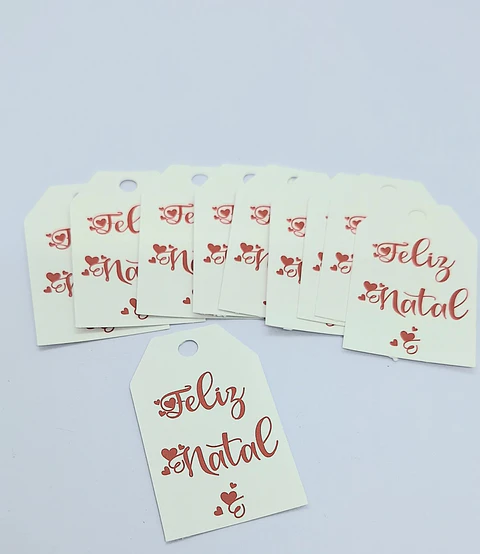 Feliz
Natal
E
Feliz
Natal
E